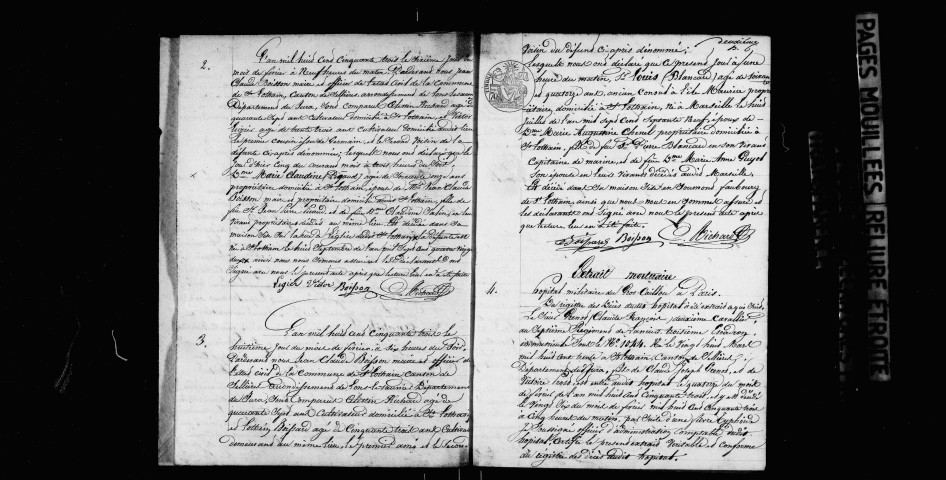 2.
L'an mil huit cent cinquante trois le sixième jour du
mois de février à neuf heures du matin, Pardevant nous Jean
Claude Boisson maire et officier de l'état civil de la commune
de St Lothain, canton de Sellières, arrondissement de Lons-le-saunier
Département du Jura, sont comparus Célestin Richard agé de
quarante sept ans cultivateur domicilié à St Lothain, et Victor
Ligier agé de trente trois ans cultivateur domicilié audit lieu
le premier cousin et le second voisin de la
défunte ci-après dénommée; lesquels nous ont déclaré que le
jour d'hier cinq du courant mois à trois heures du soir
Dme Marie Claudine Pigaud, agée de soixante onze ans
propriétaire domiciliée à St Lothain, épouse de Mr Jean Claude
Boisson maire et propriétaire domicilié audit St Lothain, fille de
feu Sr Jean Pierre Pigaud et de feu Dme Claudine
vivans propriétaires décédés au même lieu. Est décédée dans sa
maison
née à St Lothain le huit septembre de l'an mil sept cent quatre vingt
ainsi que nous nous en sommes assuré et les déclarants ont
signé avec nous le présent acte après que lecture leur en a été faite.
Ligier Victor Boisson C. Richard
3.
L'an mil huit cent cinquante trois le
huitième jour du mois de février, à dix heures du soir
Pardevant nous Jean Claude Boisson maire et officier de
l'état civil de la commune de St Lothain canton de
Sellières arrondissement de Lons-le-saunier Département
du Jura, sont comparus Célestin Richard agé de
quarante sept ans cultivateur domicilié à St Lothain
et Lothain Boissard agé de cinquante trois ans cultivateur
demeurant au même lieu, le premier ami et le second
deuxième
voisin du défunt ci-après dénommé;
lesquels nous ont déclaré que ce présent jour à une
heure du matin, Sr Louis Blancard agé de soixante
et quatorze ans, ancien consul à l'ile Maurice propri-
étaire, domicilié à St Lothain, né à Marseille le huit
juillet de l'an mil sept cent septante neuf, époux de
Dme Marie Augustine Chenel propriétaire domiciliée à
St Lothain, fils de feu Sr Pierre Blancard en son vivant
Capitaine de marine, et de feu Dme Marie Anne Guyot
son épouse en leurs vivants décédés audit Marseille,
Est décédé dans sa maison sise en Fourmont faubourg
de St Lothain, ainsi que nous nous en sommes assuré et
les déclarants ont signé avec nous le présent acte après
que lecture leur en a été faite.
Boissard Boisson C. Richard
4.
Extrait mortuaire
hopital militaire du Gros Caillou à Paris.
Du registre des Décès dudit hopital a été extrait ce qui suit.
Le Sieur Grenot, Claude François, deuxième cavalier
au Septième Régiment de lanciers troisième Escadron,
immatriculé sous le No 1044. Né le vingt huit Mars
mil huit cent trente à St Lothain Canton de Sellières,
Département du Jura, fils de Claude Joseph Grenot, et de
Victoire Grenot, est entré audit hopital le quatorze du mois
de février de l'an mil huit cent cinquante trois, et y est décédé
le vingt six du mois de février mil huit cent cinquante trois
à cinq heures du matin, par suite d'une fièvre typhoïde
Je soussigné officier d'administration comptable dudit
hopital, certifie le présent extrait véritable et conforme
au registre des décès dudit hopital.
PAGES MOUILLEES / RELIURE ETROITE